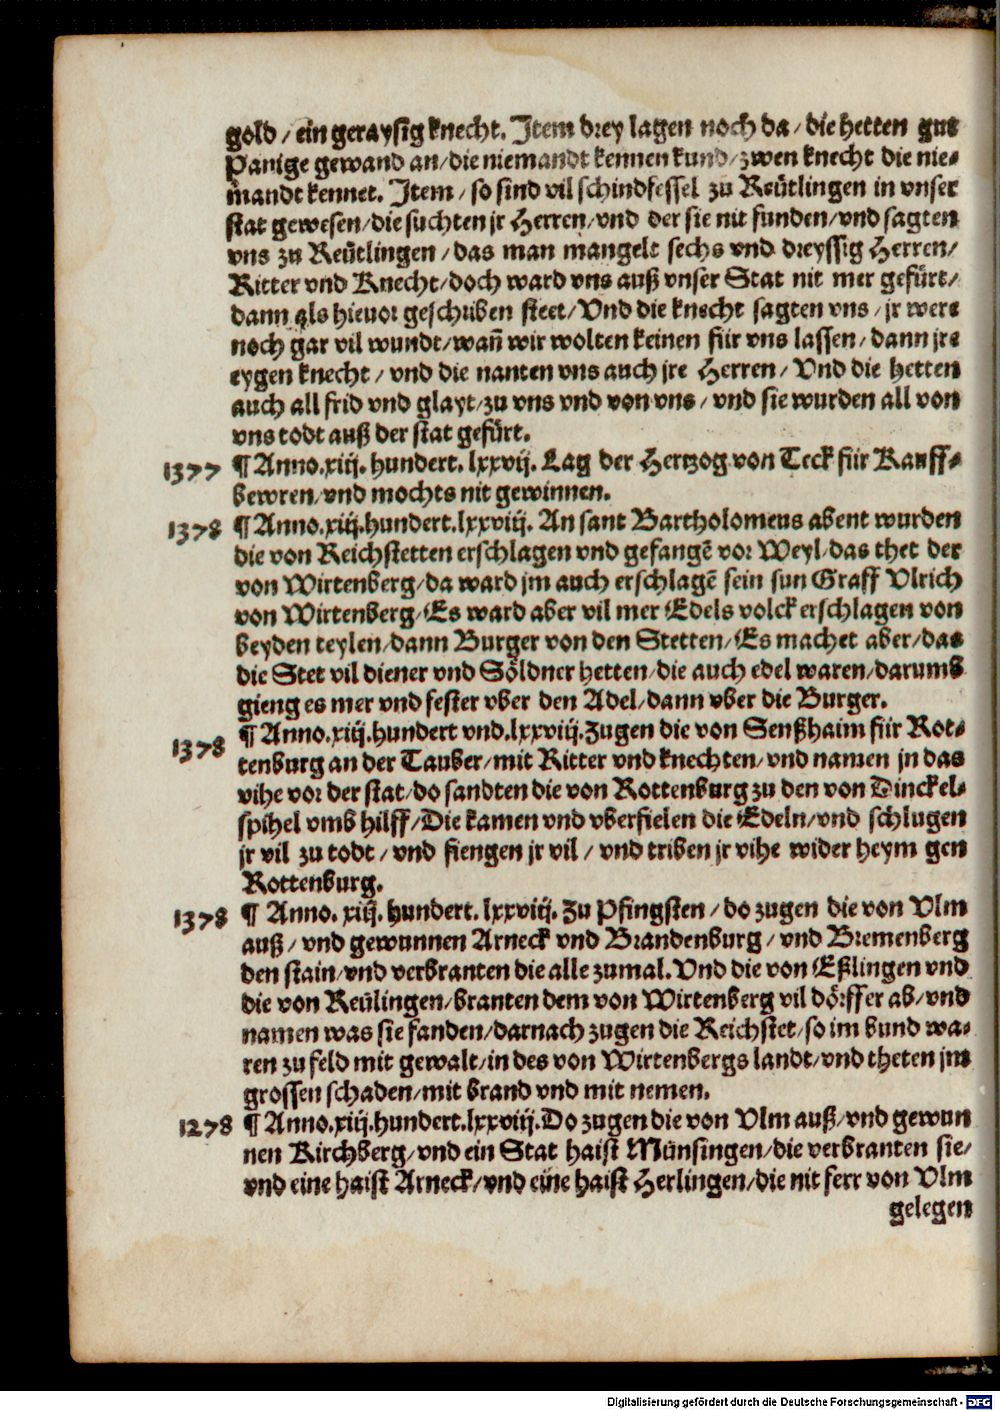 gold / ein geraysig knecht. Item drey lagen noch da / die hetten gut
Panige gewand an / die niemandt kennen kund / zwen knecht die nie-
mandt kennet. Item / so sind vil schindfessel zu Reütlingen in vnser
stat gewesen / die suchten jr Herren / vnd der sie nit funden / vnd sagten
vns zu Reütlingen / das man mangelt sechs vnd dreyssig Herren /
Ritter vnd Knecht / doch ward vns auß vnser Stat nit mer gefürt /
dann als hieuor geschriben steet / Vnd die knecht sagten vns / jr were
noch gar vil wundt / wañ wir wolten keinen für vns lassen / dann jre
eygen knecht / vnd die nanten vns auch jre Herren / Vnd die hetten
auch all frid vnd glayt / zu vns vnd von vns / vnd sie wurden all von
vns todt auß der stat gefürt.
1377 ¶ Anno.xiij. hundert. lxxvij. Lag der Hertzog von Teck für Kauff-
bewren / vnd mochts nit gewinnen.
1378 ¶ Anno.xiij.hundert.lxxviij. An sant Bartholomeus abent wurden
die von Reichstetten erschlagen vnd gefangẽ vor Weyl / das thet der
von Wirtenberg / da ward jm auch erschlagẽ sein sun Graff Vlrich
von Wirtenberg / Es ward aber vil mer Edels volck erschlagen von
beyden teylen / dann Burger von den Stetten / Es machet aber / das
die Stet vil diener vnd Söldner hetten / die auch edel waren / darumb
gieng es mer vnd fester vber den Adel / dann vber die Burger.
1378 ¶ Anno.xiij.hundert vnd.lxxviij. Zugen die von Senßhaim für Rot-
tenburg an der Tauber / mit Ritter vnd knechten / vnd namen jn das
vihe vor der stat / do sandten die von Rottenburg zu den von Dinckel-
spihel vmb hilff / Die kamen vnd vberfielen die Edeln / vnd schlugen
jr vil zu todt / vnd fiengen jr vil / vnd triben jr vihe wider heym gen
Rottenburg.
1378 ¶ Anno. xiij. hundert. lxxviij. Zu Pfingsten / do zugen die von Vlm
auß / vnd gewunnen Arneck vnd Brandenburg / vnd Bremenberg
den stain / vnd verbranten die alle zumal. Vnd die von Eßlingen vnd
die von Reülingen / branten dem von Wirtenberg vil dörffer ab / vnd
namen was sie fanden / darnach zugen die Reichstet / so im bund wa-
ren zu feld mit gewalt / in des von Wirtenbergs landt / vnd theten jm
grossen schaden / mit brand vnd mit nemen.
1278 ¶ Anno.xiij.hundert.lxxviij. Do zugen die von Vlm auß / vnd gewun
nen Kirchberg / vnd ein Stat haist Münsingen / die verbranten sie /
vnd eine haist Arneck / vnd eine haist Herlingen / die nit ferr von Vlm
gelegen
Digitalisierung gefördert durch die Deutsche Forschungsgemeinschaft - DFG